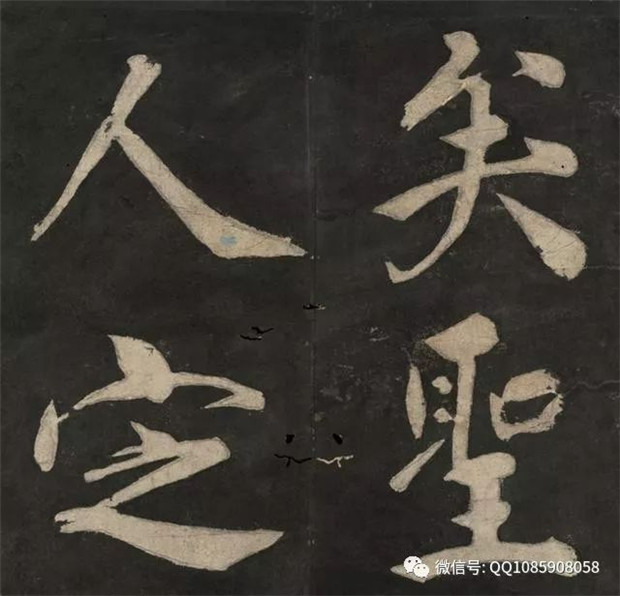 矣聖
人定
微信号: QQ1085908058